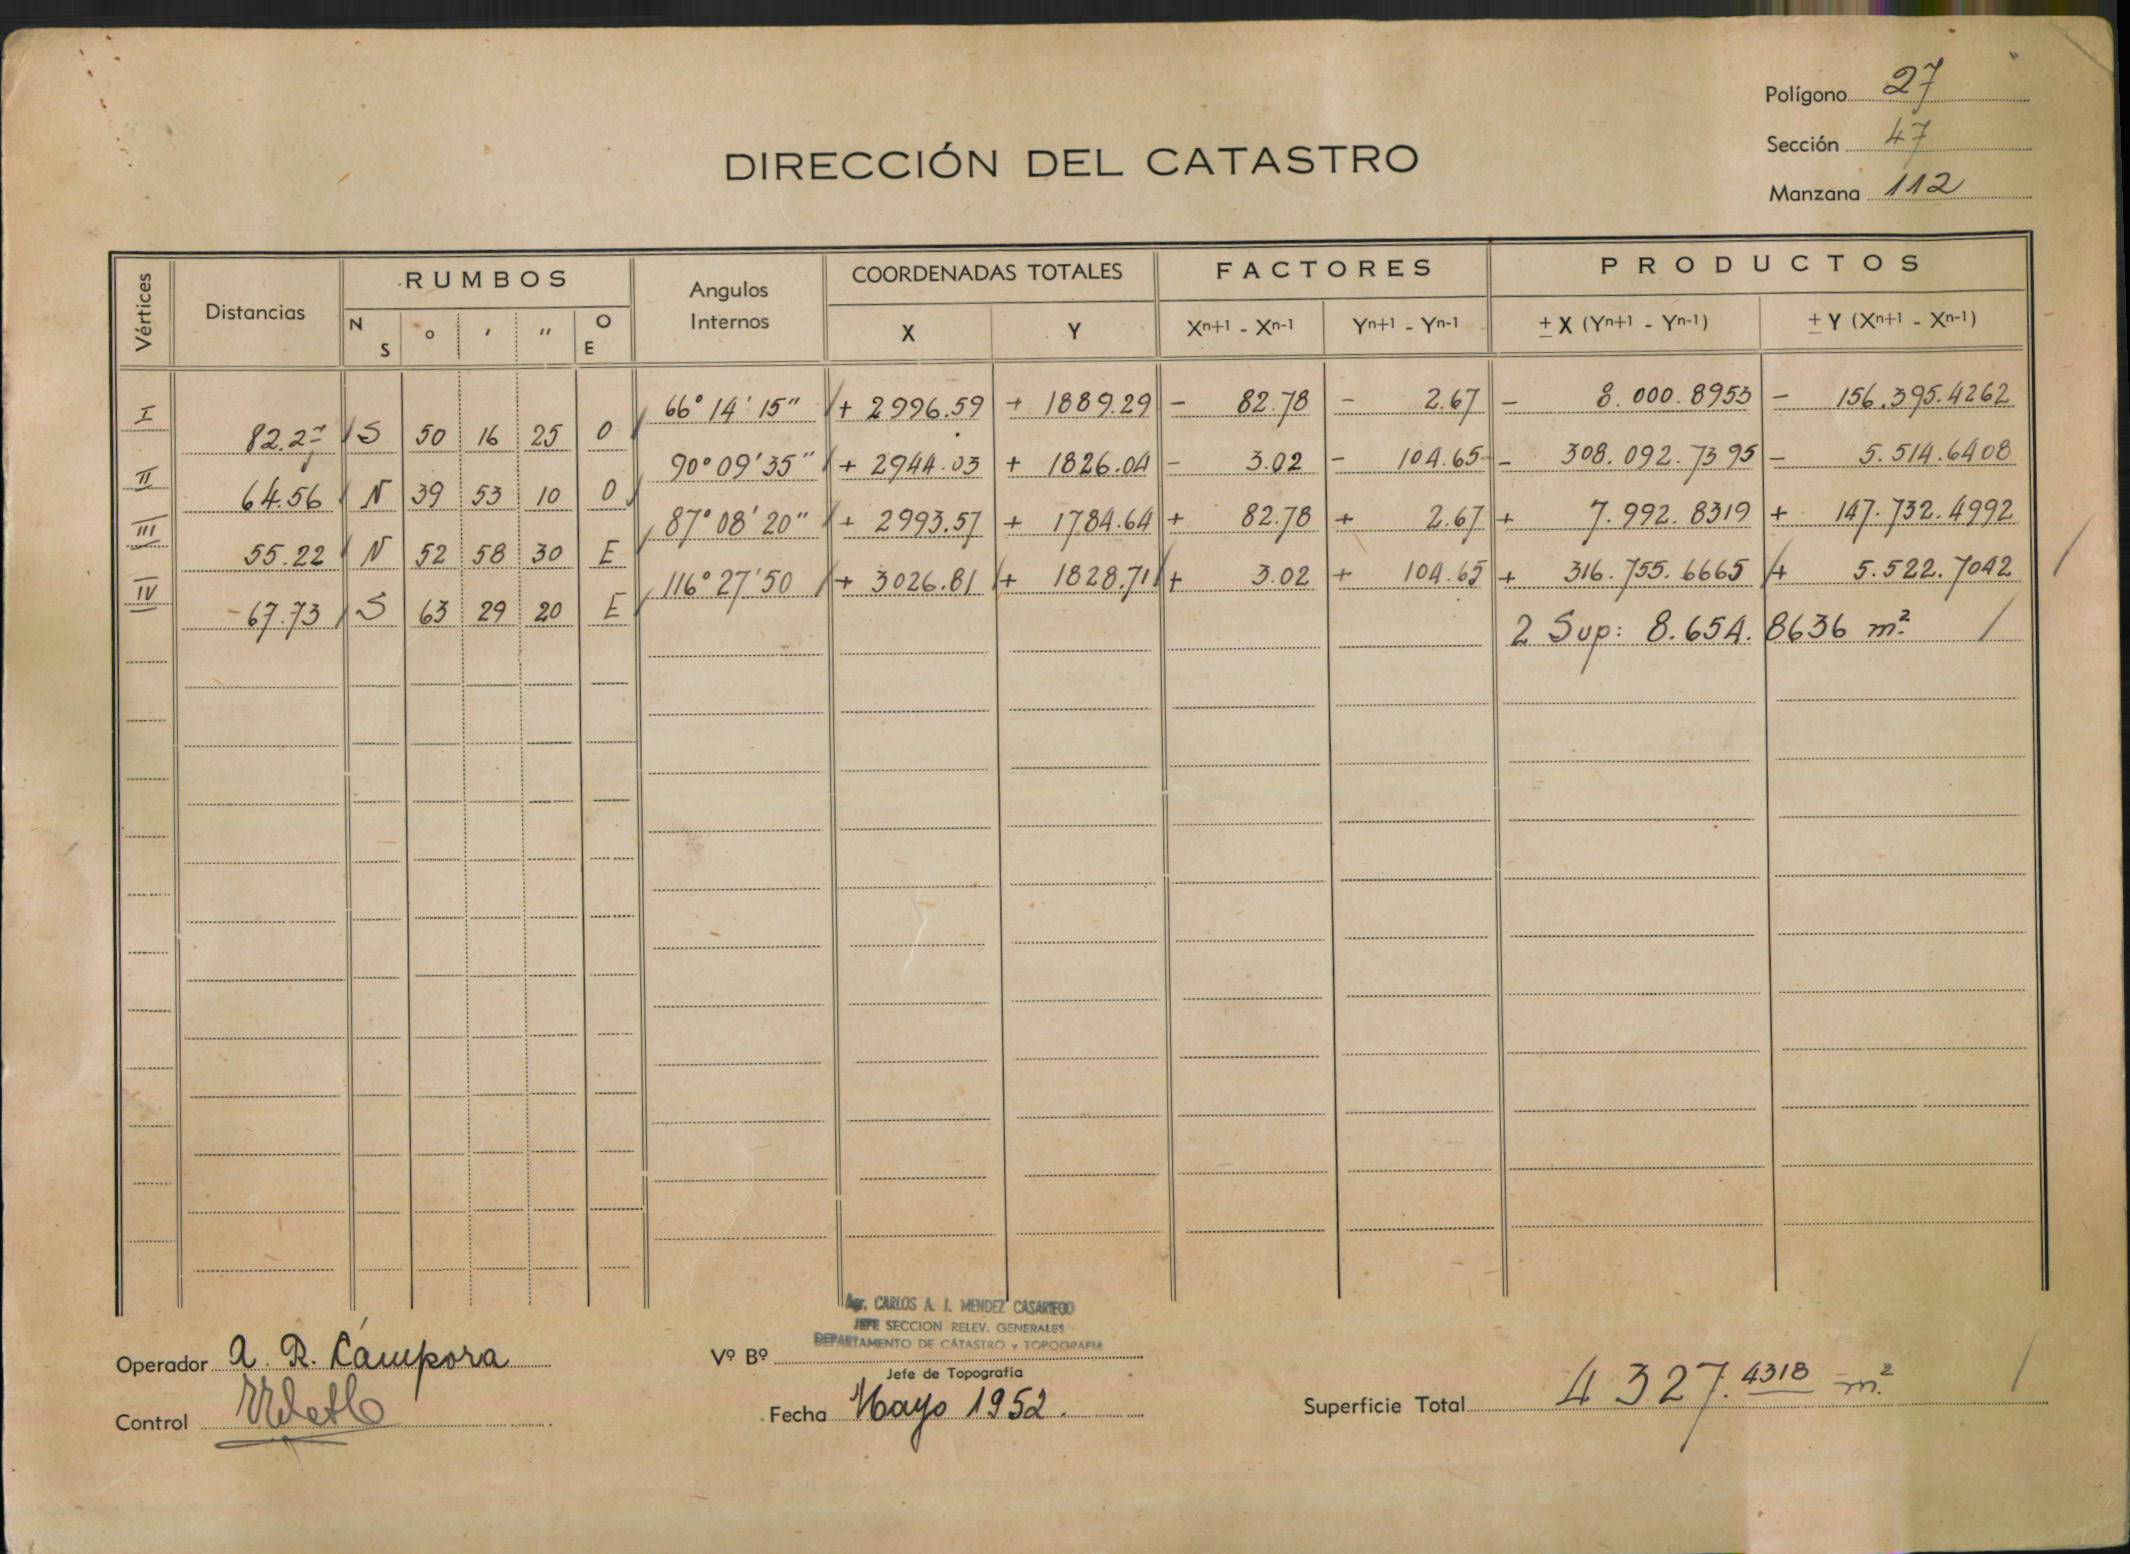 Polígono 27
Sección 47
Manzana 112
DIRECCIÓN DEL CATASTRO
Vértices Distancias RUMBOS Angulos Internos COORDENADAS TOTALES FACTORES PRODUCTOS
N S ° ' '' O E X Y Xn+1 - Xn-1 Yn+1 - Yn-1 ± X (Yn+1 - Yn-1) ± Y (Xn+1 - Xn-1)
I 66° 14' 15" + 2996.59 + 1889.29 - 82.78 - 2.67 - 8.000.8953 - 156.395.4262
82.27 S 50 16 25 O
II 90° 09' 35" + 2944.03 + 1826.04 - 3.02 - 104.65 - 308.092.7395 - 5.514.6408
64.56 N 39 53 10 O
III 87° 08' 20" + 2993.57 + 1784.64 + 82.78 + 2.67 + 7.992.8319 + 147.732.4992
55.22 N 52 58 30 E
IV 116° 27' 50 + 3026.81 + 1828.71 + 3.02 + 104.65 + 316.755.6665 + 5.522.7042
67.73 S 63 29 20 E
2 Sup: 8.654.8636 m²
Agr. CARLOS A. I. MENDEZ CASARIEGO
JEFE SECCION RELEV. GENERALES
DEPARTAMENTO DE CATASTRO y TOPOGRAFIA
Operador A. R. Cámpora
Vº Bº
Jefe de Topografía
Control
Fecha Mayo 1952.
Superficie Total 4327.4318 m²